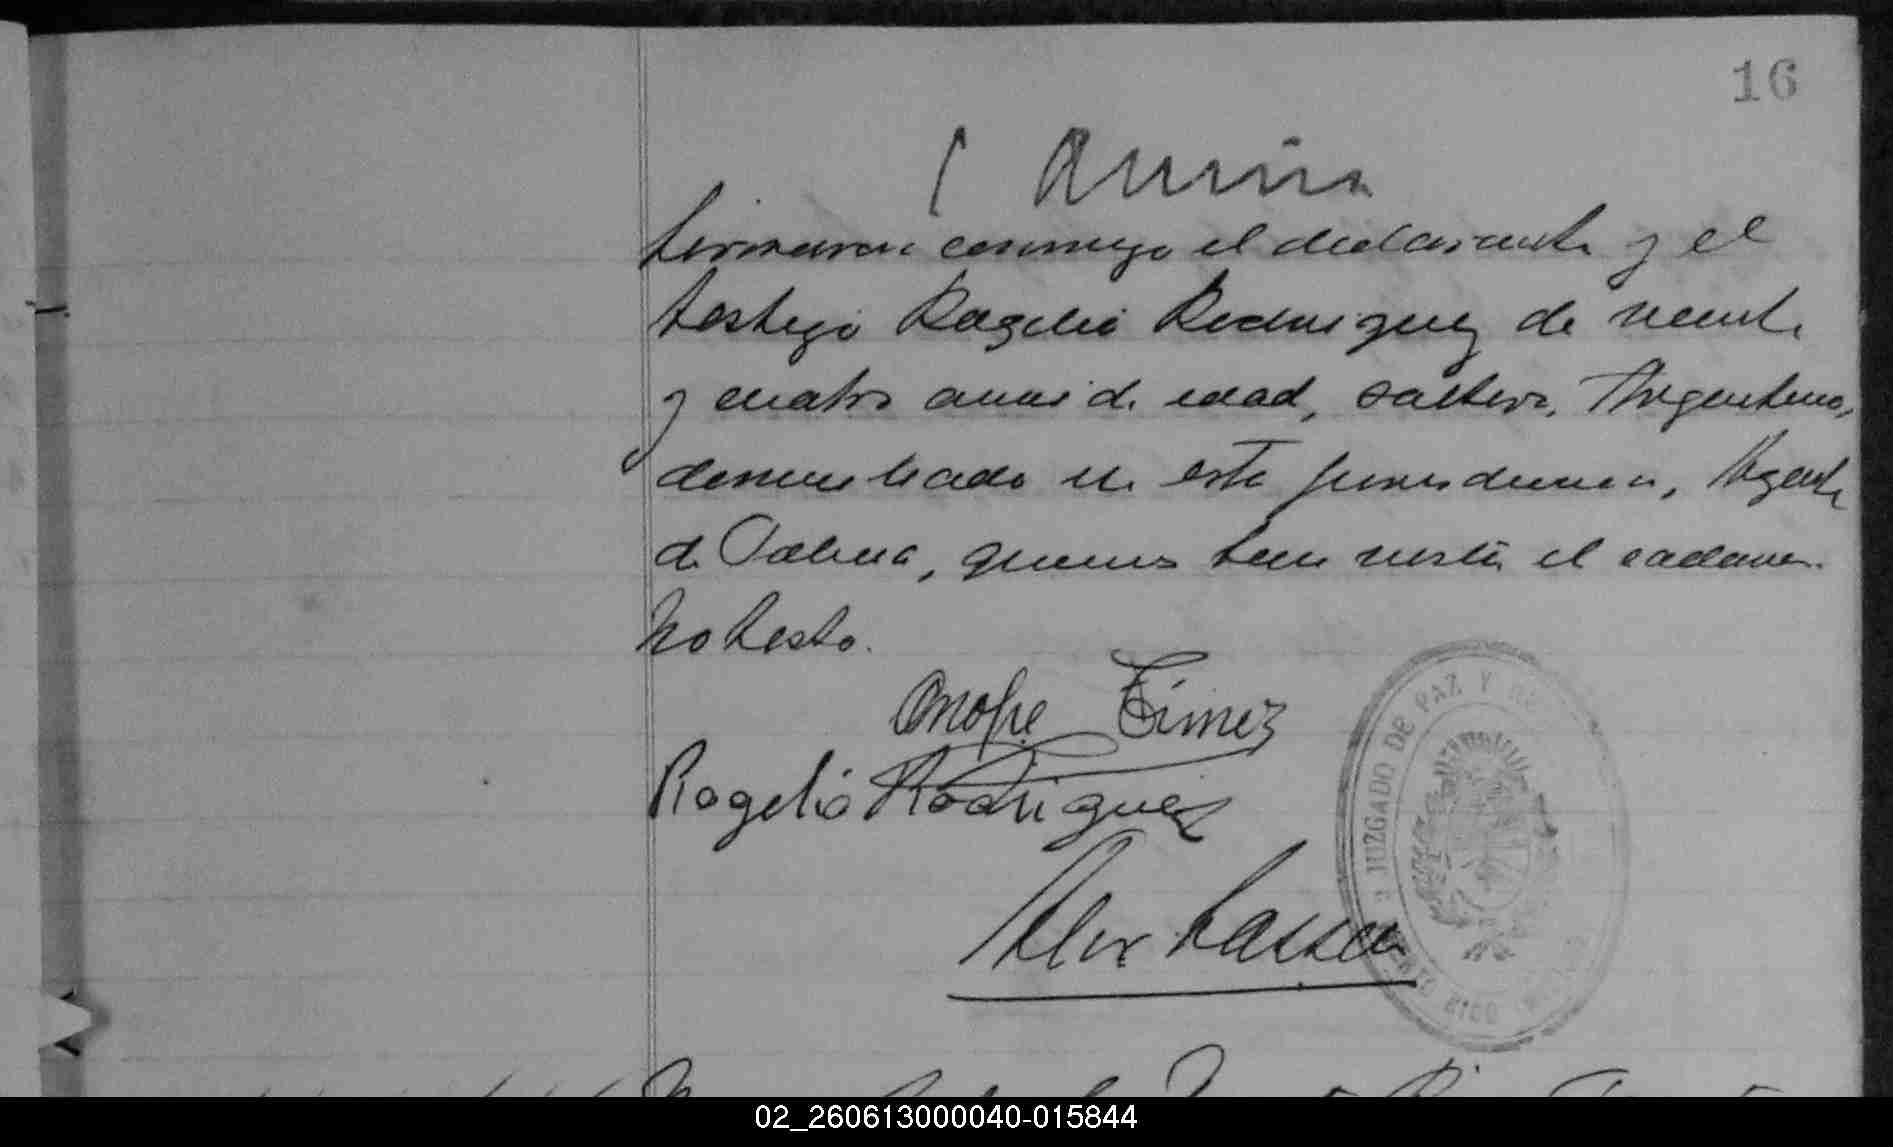 16
firmaron conmigo el declarante y el
testigo Rogelio Rodriguez de veinte
y cuatro años de edad, soltero, Argentino,
domiciliado en esta jurisdiccion, Agente
de Policia, quienes han visto el cadaver.
No testo.
Onofre Gimez
Rogelio Rodriguez
JUZGADO DE PAZ Y
02_260613000040-015844